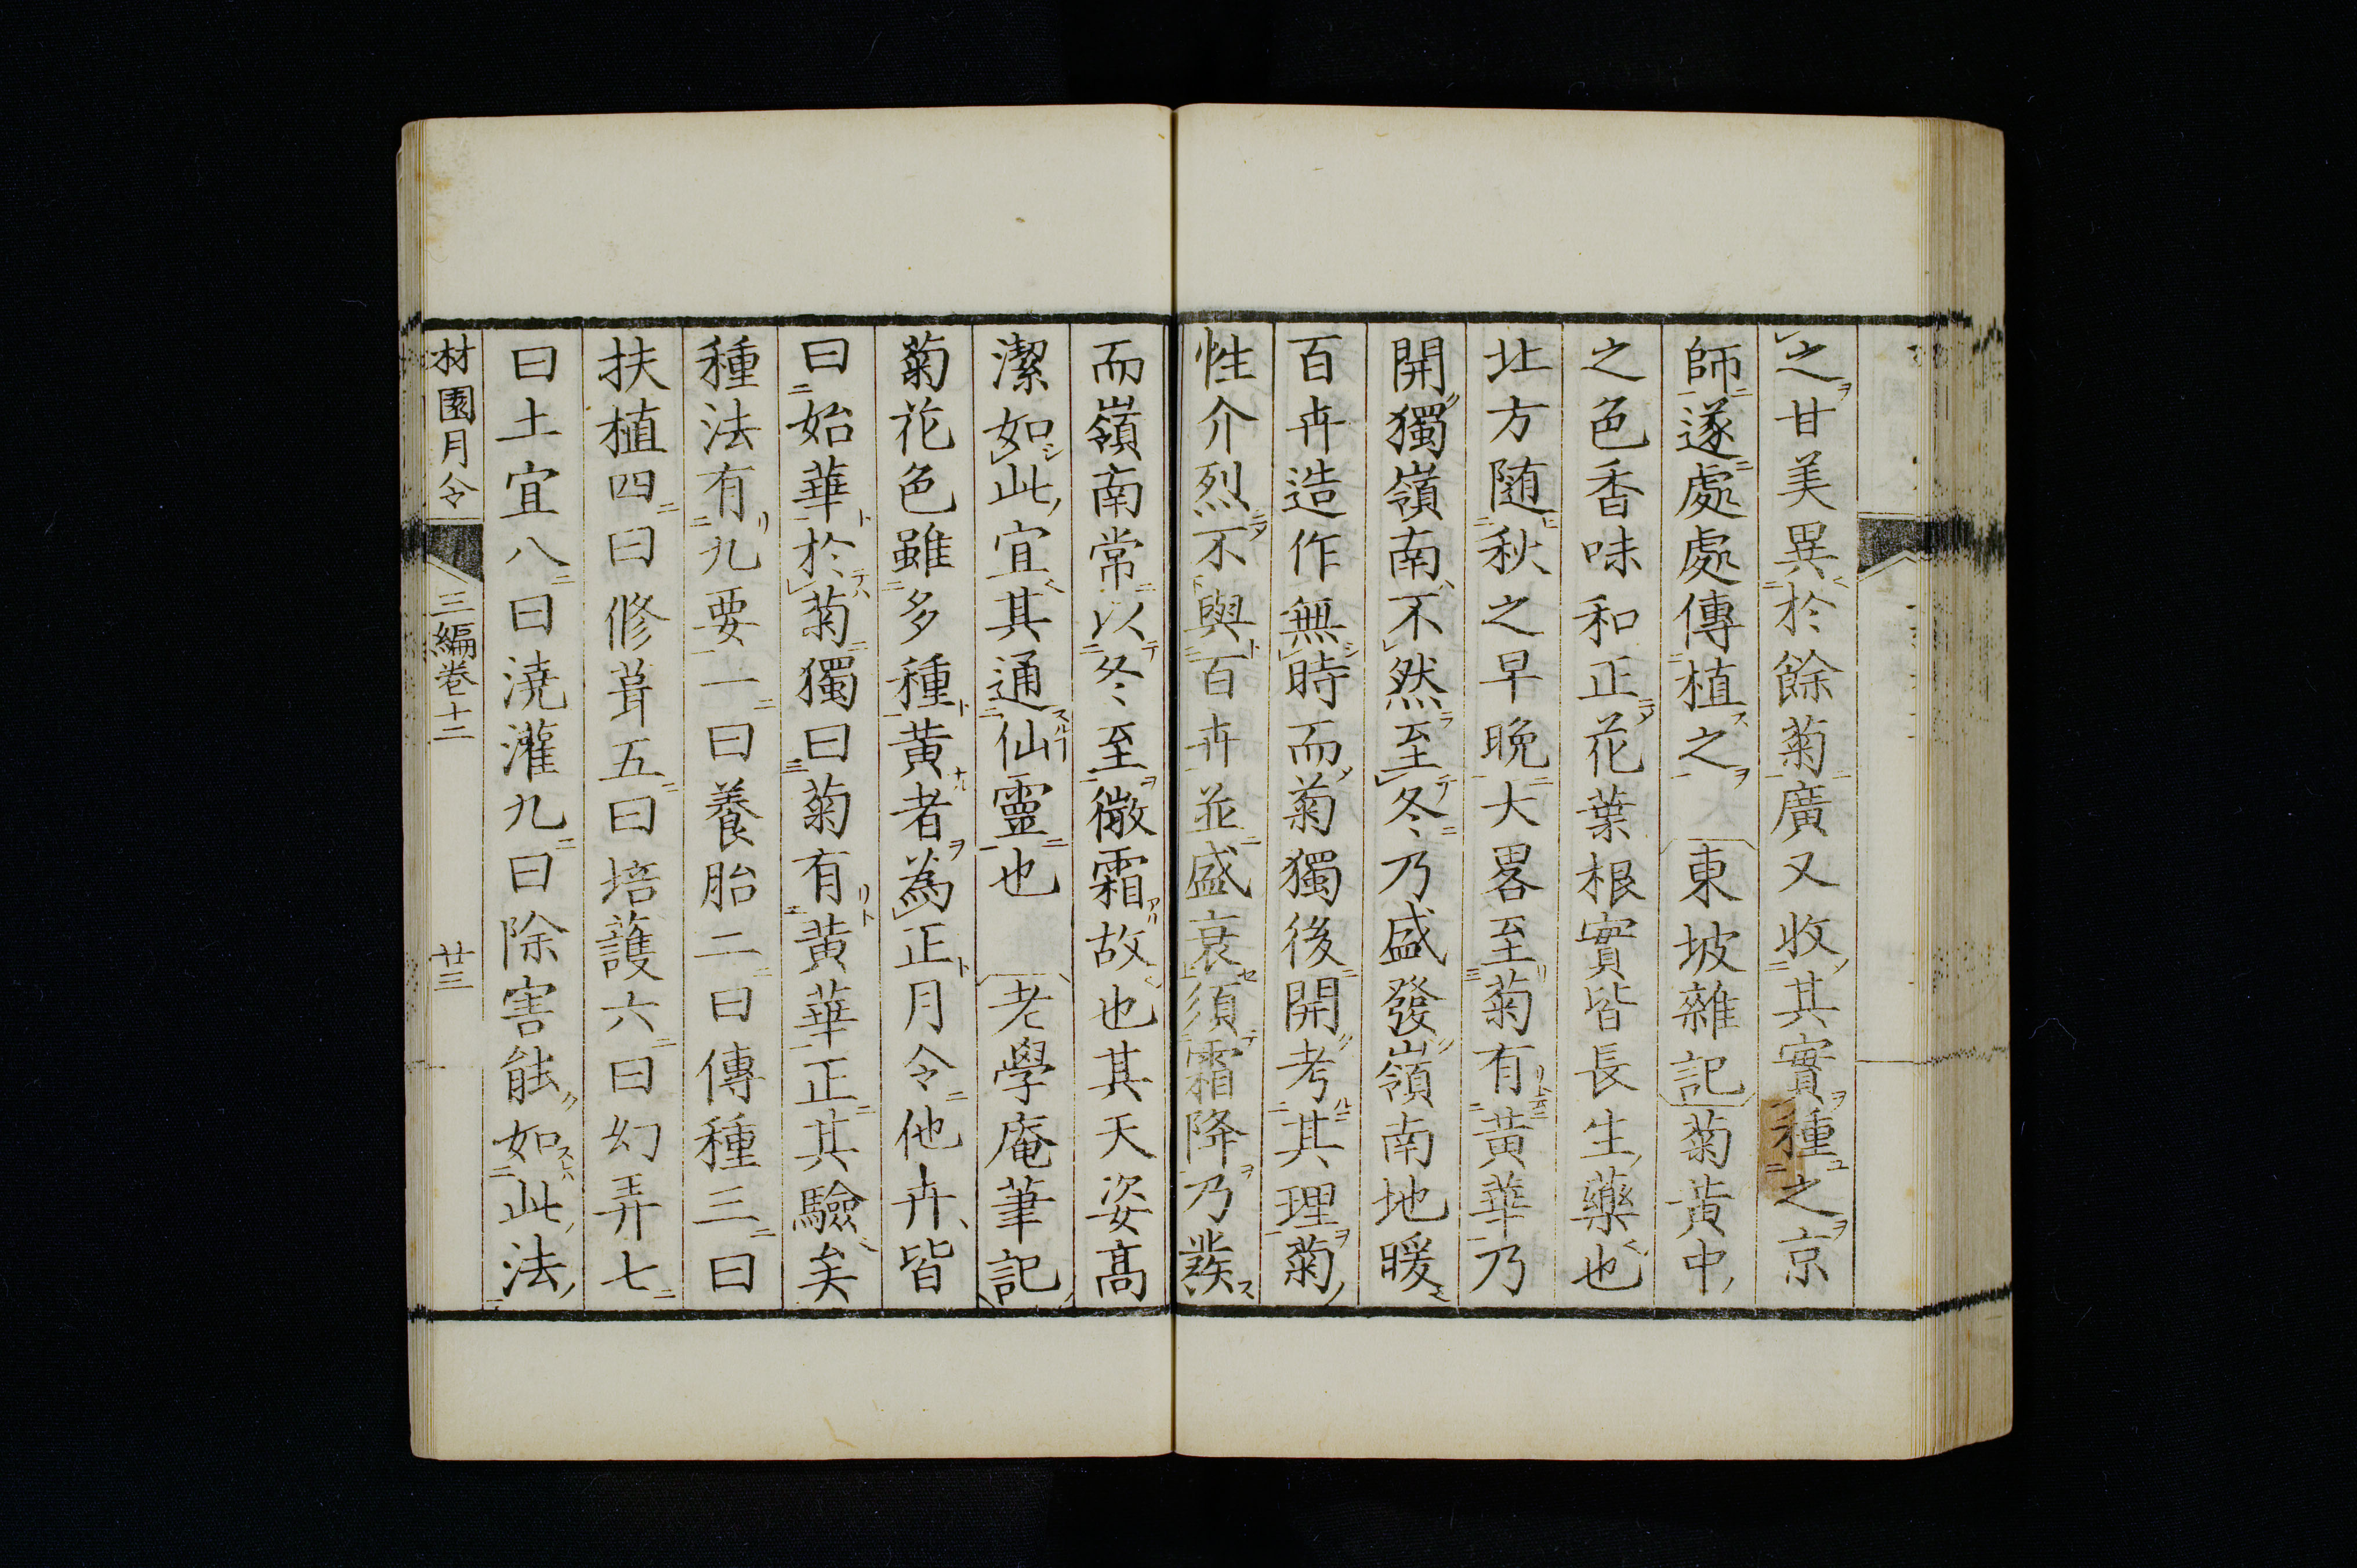 之甘美異於餘菊廣又收其實種之京
師遂處處傳植之 東坡雜記菊黃中
之色香味和正花葉根實皆長生藥也
北方随秋之早晩大畧至菊有黃華乃
開獨嶺南不然至冬乃盛發嶺南地暖
百卉造作無時而菊獨後開考其理菊
性介烈不與百卉並盛衰須霜降乃發
而嶺南常以冬至微霜故也其天姿高
潔如此宜其通仙靈也 老學庵筆記
菊花色雖多種黃者為正月令他卉皆
曰始華於菊獨曰菊有黃華正其驗矣
種法有九要一曰養胎二曰傳種三曰
扶植四曰修葺五曰培護六曰幻弄七
曰土宜八曰澆灌九曰除害能如此法
材園月令 三編卷十二 廿三